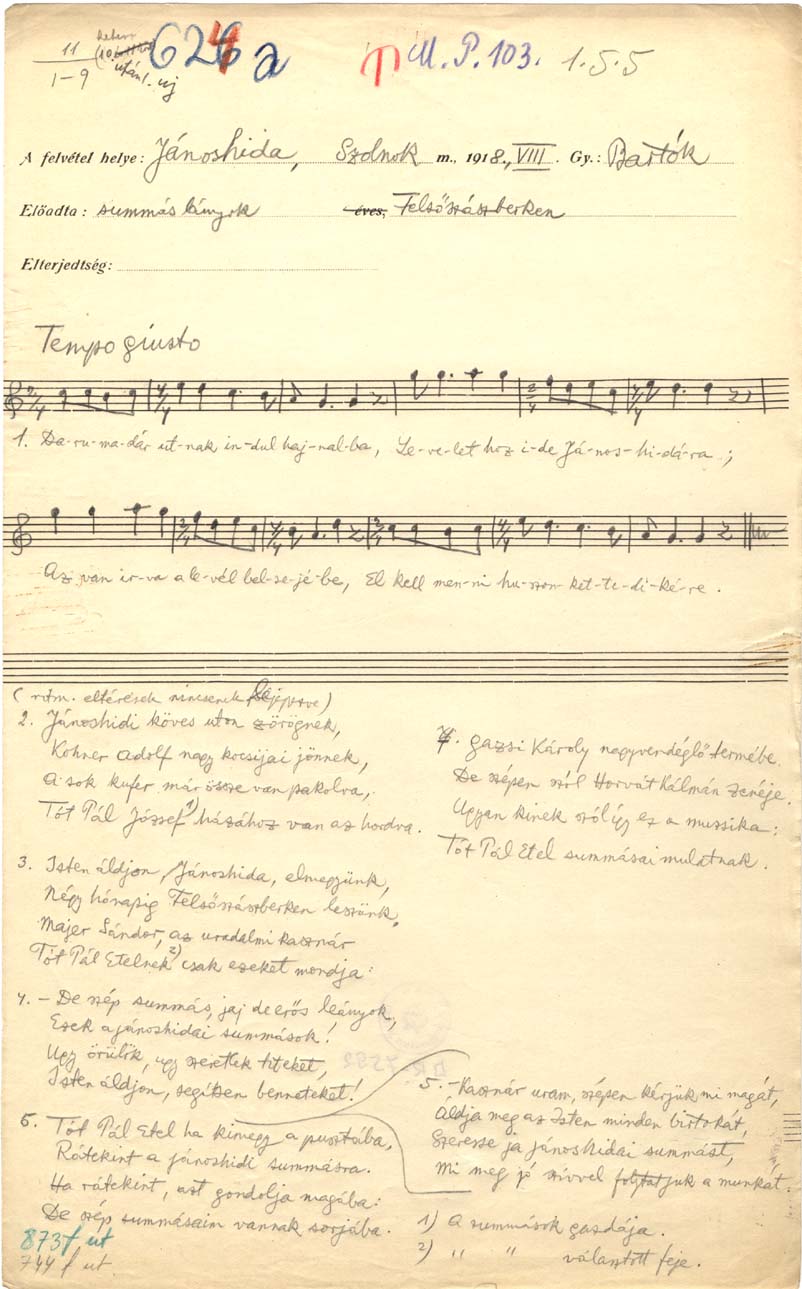 11
1-9
után 1. új
624 a
M. P. 103.
1.5.5
A felvétel helye: Jánoshida, Szolnok m., 1918., VIII. Gy.: Bartók
Előadta: summás lányok éves, Felsőszászberken
Elterjedtség:
Tempo giusto
1. Da-ru-ma-dár ut-nak in-dul haj-nal-ba, Le-ve-let hoz i-de Já-nos-hi-dá-ra;
Az van ir-va a le-vél bel-se-jé-be, El kell men-ni hu-szon-ket-te-di-ké-re.
(ritm. eltérések nincsenek följegyezve)
2. Jánoshidi köves uton zörögnek,
Kohner Adolf nagy kocsijai jönnek,
A sok kufer már össze van pakolva,
Tót Pál József 1) házához van az hordva.
3. Isten áldjon, Jánoshida, elmegyünk,
Négy hónapig Felsőszászberken leszünk,
Majer Sándor, az uradalmi kasznár
Tót Pál Etelnek 2) csak ezeket mondja:
4. – De szép summás, jaj de erős leányok,
Ezek a jánoshidai summások!
Ugy örülök, ugy szeretlek titeket,
Isten áldjon, segítsen benneteket!
6. Tót Pál Etel ha kimegy a pusztába,
Rátekint a jánoshidi summásra.
Ha rátekint, azt gondolja magába:
De szép summásaim vannak sorjába.
873 f ut
744 f ut
7. Gazsi Károly nagyvendéglő termébe
De szépen szól Horvát Kálmán zenéje.
Ugyan kinek szól ugy ez a muzsika:
Tót Pál Etel summásai mulatnak.
5. – Kasznár uram, szépen kérjük mi magát,
Áldja meg az Isten minden birtokát,
Szeresse ja jánoshidai summást,
Mi meg jó szivvel folytatjuk a munkát.
1) A summások gazdája.
2) " " választott feje.